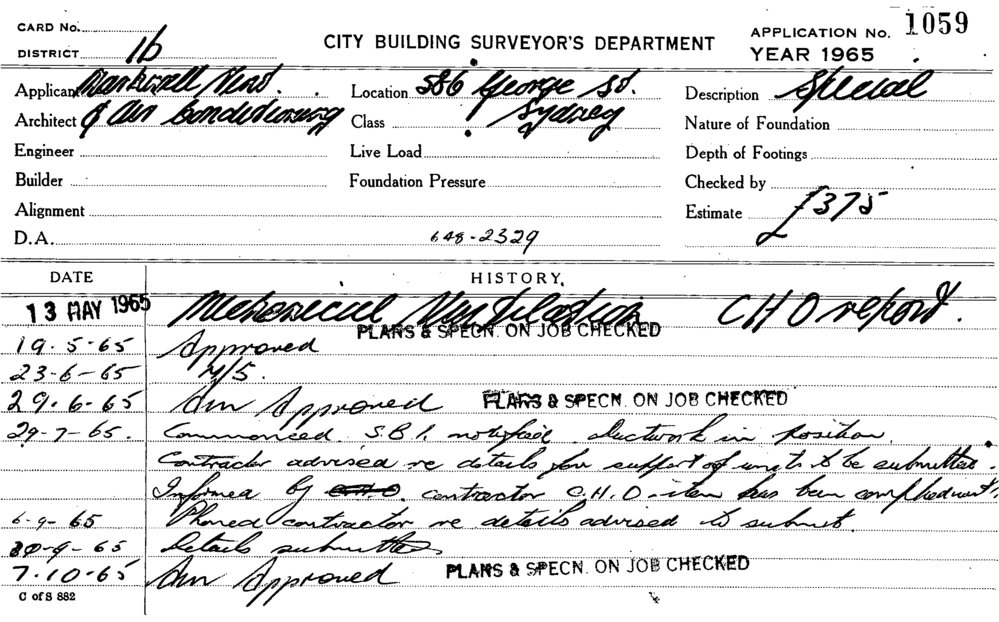 CARD No.
DISTRICT 1b
CITY BUILDING SURVEYOR'S DEPARTMENT
APPLICATION No. 1059
YEAR 1965
Applicant Vent. Location 586 George St. Description Special
Architect & Air Conditioning Class Sydney Nature of Foundation
Engineer Live Load Depth of Footings
Builder Foundation Pressure Checked by
Alignment Estimate £375
D.A. 648-2329
DATE HISTORY.
13 MAY 1965 Mechanical Ventilation CHO report.
PLANS & SPECN. ON JOB CHECKED
19.5.65 Approved
23-6-65 N/S.
29.6.65 Am Approved PLANS & SPECN. ON JOB CHECKED
29-7-65. Commenced. S.B.I. notified ductwork in position.
Contractor advised re details for support of units to be submitted.
Informed by C.H.O. contractor C.H.O. item has been complied with.
6-9-65 Phoned contractor re details advised to submit.
-9-65 Details submitted
7.10.65 Am Approved PLANS & SPECN. ON JOB CHECKED
C of S 882